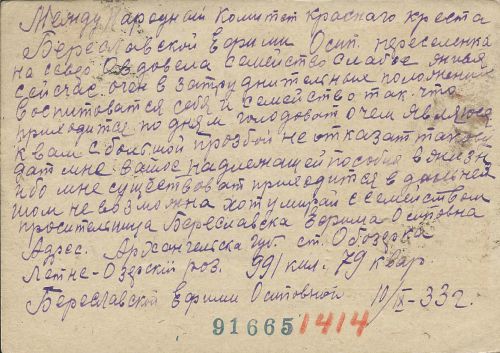 Между Народный Комитет Краснаго креста
Береславской Ефими Осит. переселенка
на север Овдовела семейство слабае жилья
сейчас очен в затруднительным положений
воспитоватся себя и семейство так что
приходится по дням голодоват о чем являюся
к вам с большой прозбой не отказат так
дат мне вашое надлежащей пособия в жизн
ибо мне существоват приходится в дальней
шом не возможна хот умирай с семейством
просительница Береславска Ефима Оситовна
Адрес. Архангельска губ. ст. Обозерка
Летне-Озерский роз. 99/кил. 79 квар.
Береславской Ефими Оситовной 10/IX-33г.
91665 1414